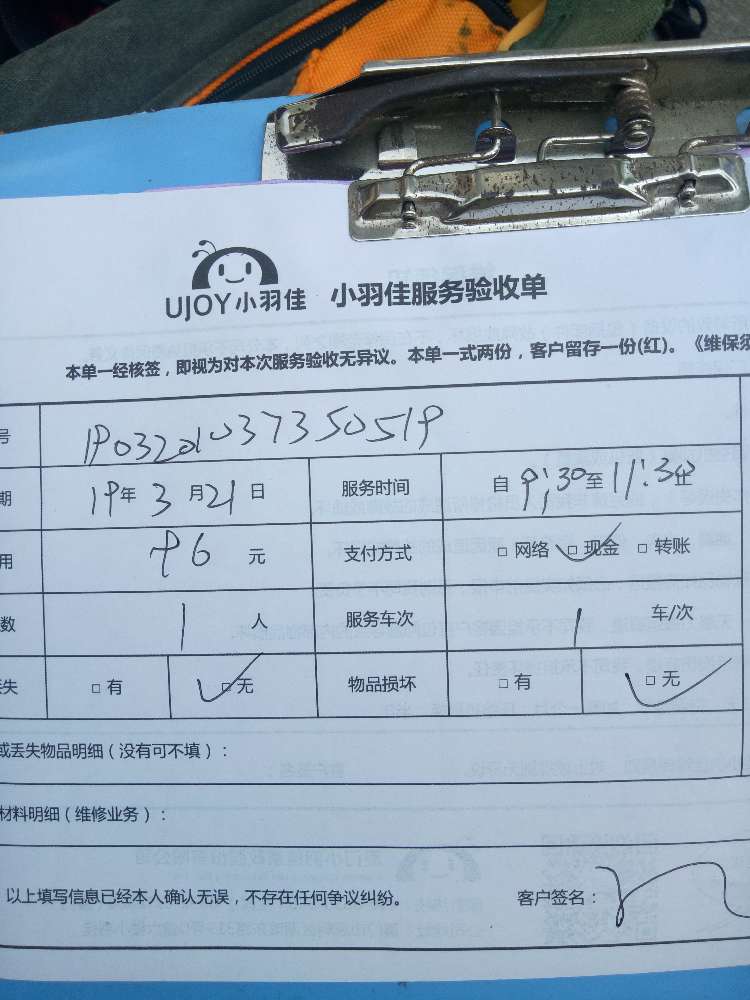 UJOY小羽佳 小羽佳服务验收单
本单一经核签，即视为对本次服务验收无异议。本单一式两份，客户留存一份(红)。《维保须
号 1903201037350519
期 19年3月21日 服务时间 自9:30至11:30止
用 96元 支付方式 □网络 □现金 □转账
数 1人 服务车次 1 车/次
丢失 □有 □无 物品损坏 □有 □无
或丢失物品明细（没有可不填）：
材料明细（维修业务）：
以上填写信息已经本人确认无误，不存在任何争议纠纷。 客户签名：